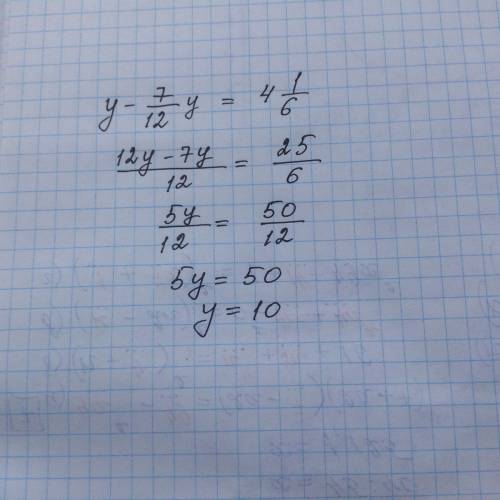 y - 7/12 y = 4 1/6
12y - 7y / 12 = 25/6
5y/12 = 50/12
5y = 50
y = 10